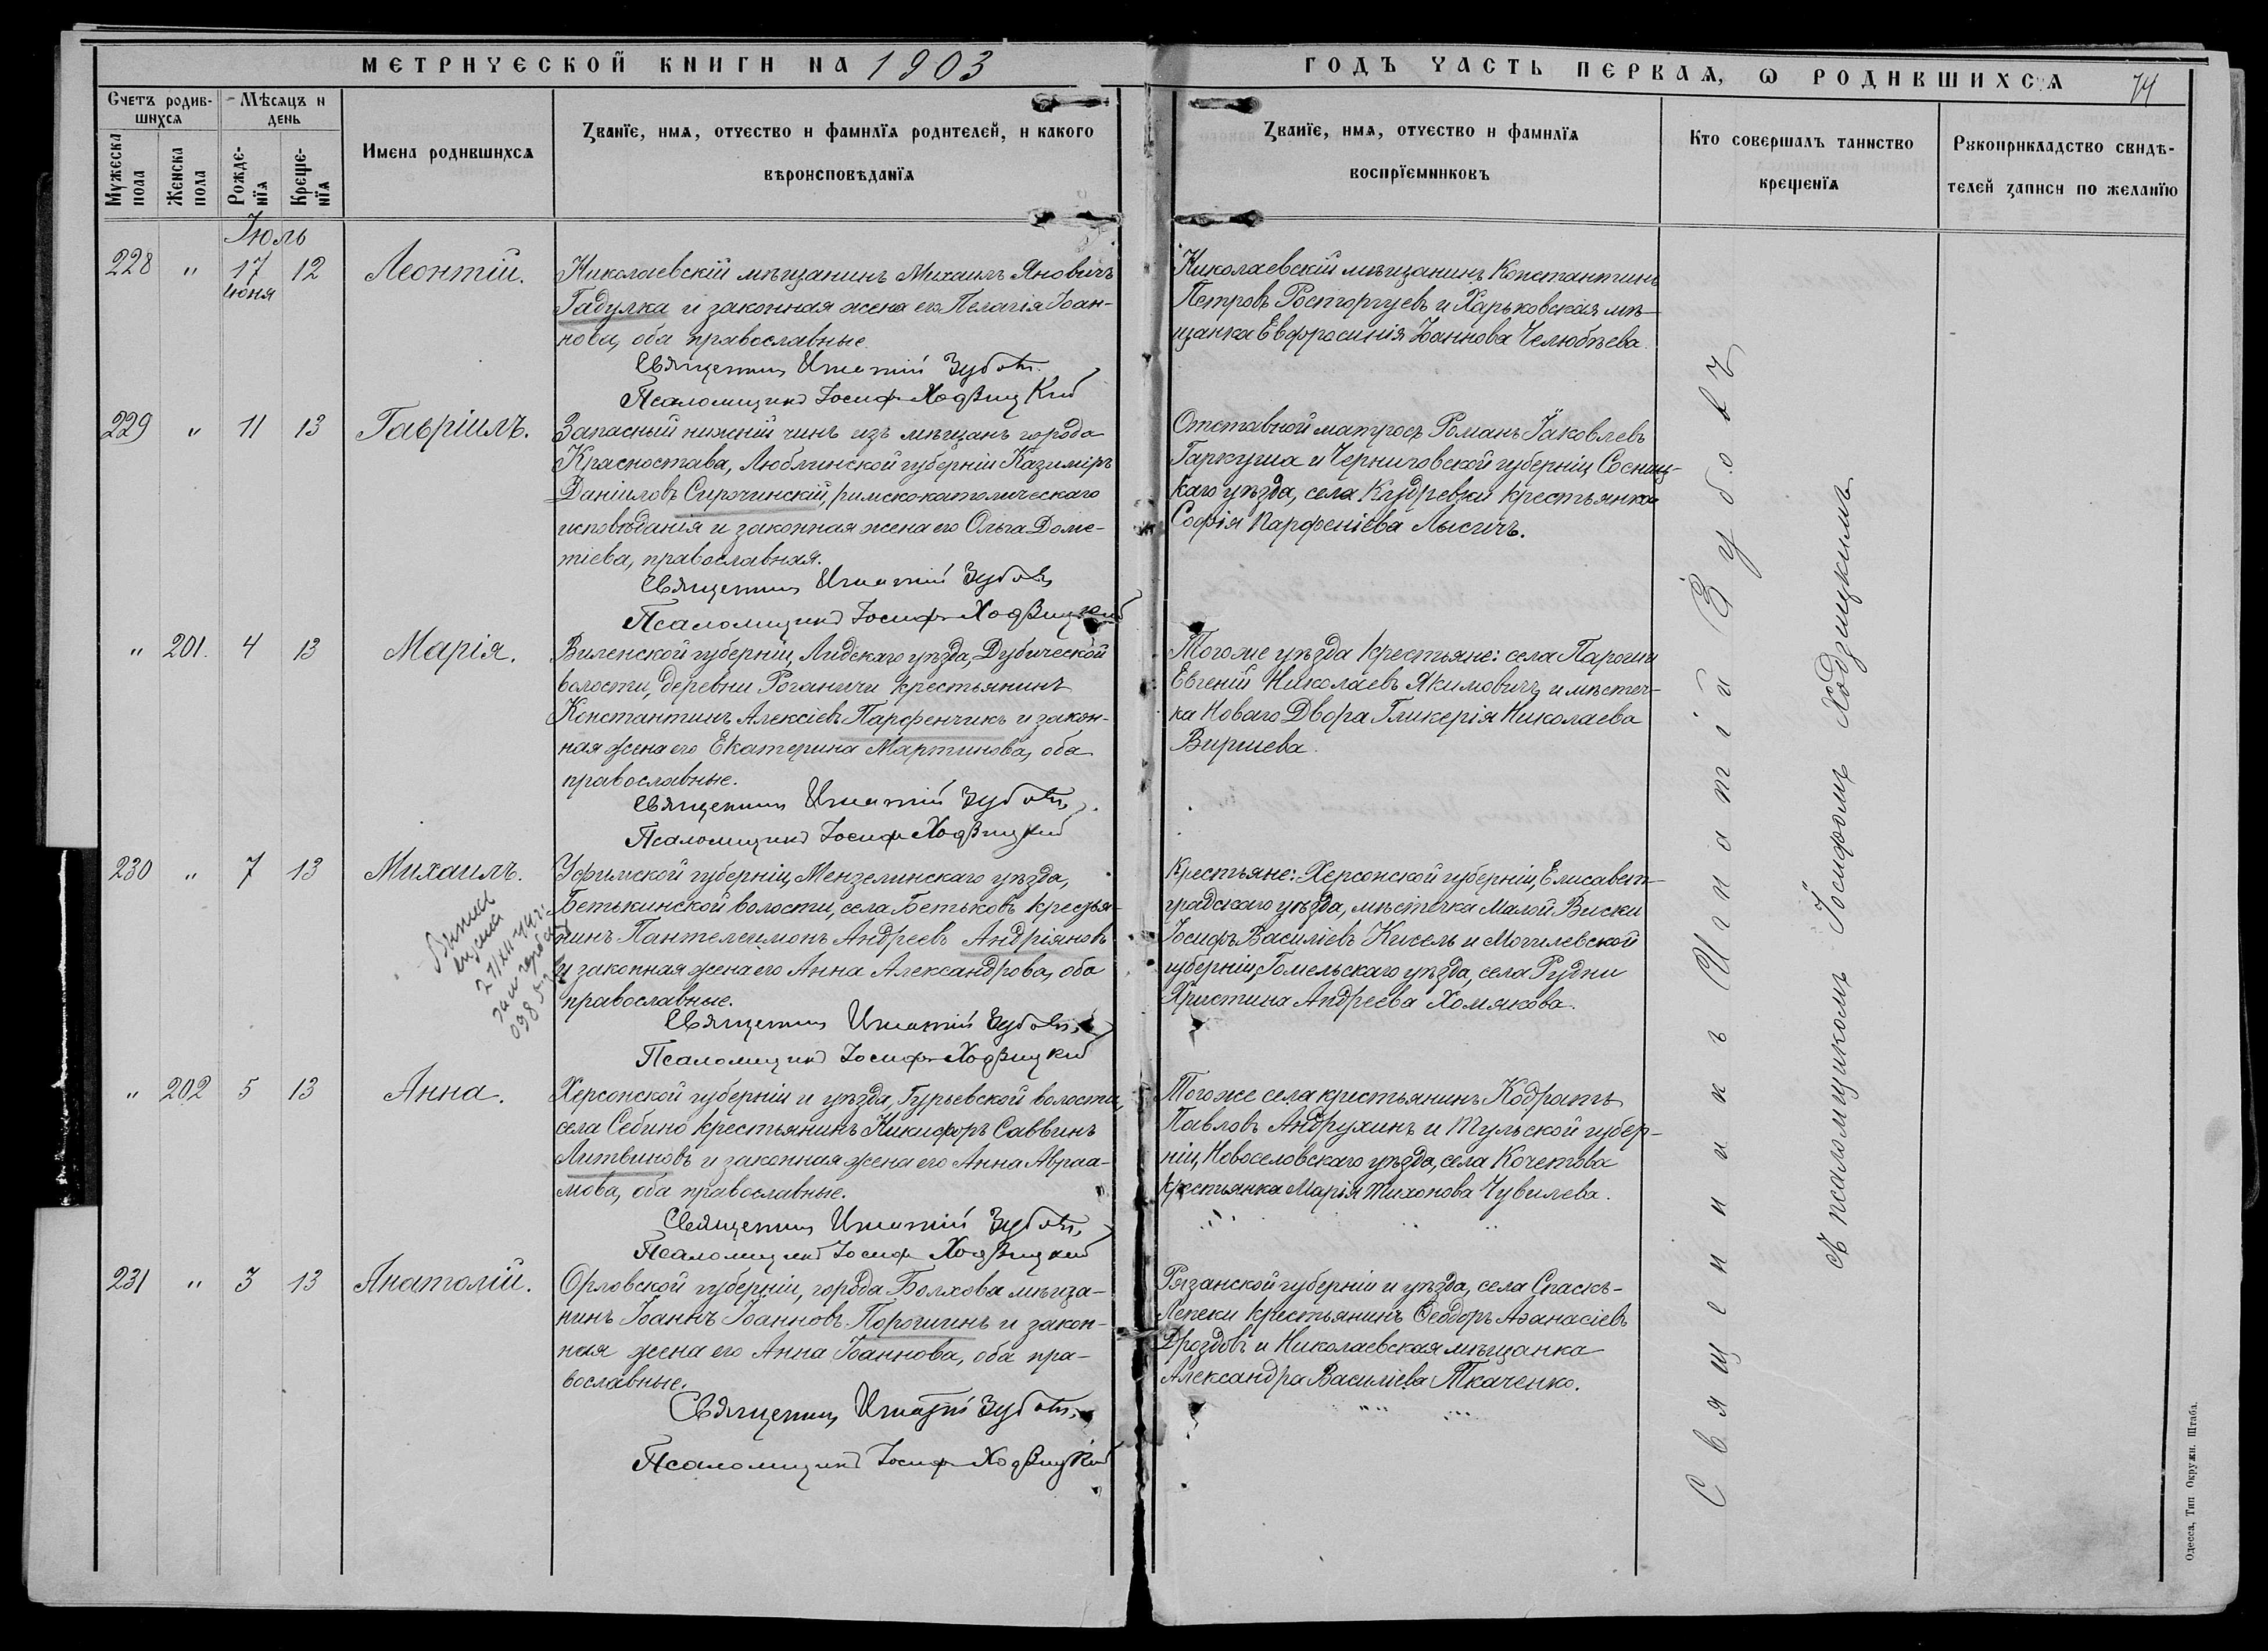 МЕТРИЧЕСКОЙ КНИГИ НА 1903
ГОДЪ ЧАСТЬ ПЕРВАЯ, Ѡ РОДИВШИХСЯ 74
Счетъ родив-
шихся
Мѣсяцъ и
день
Мужеска
пола
Женска
пола
Рожде-
нїя
Креще-
нїя
Имена родившихся
Званїе, имя, отчество и фамилїя родителей, и какого
вѣроисповѣданїя
Званїе, имя, отчество и фамилїя
воспрїемниковъ
Кто совершалъ таинство
крещенїя
Рукоприкладство свидѣ-
телей записи по желанїю
Іюль
228 " 17 12 Леонтій.
Іюня
Николаевскій мѣщанинъ Михаилъ Яновичъ
Гадулка и законная жена его Пелагія Іоан-
нова, оба православные.
Священникъ Игнатій Зубовъ
Псаломщикъ Іосифъ Ходзицкій
Николаевскій мѣщанинъ Константинъ
Петровъ Росторгуевъ и Харьковская мѣ-
щанка Евфросинія Іоаннова Челюбѣева.
229 " 11 13 Гавріилъ.
Запасный нижній чинъ изъ мѣщанъ города
Красностава, Люблинской губерніи Казиміръ
Даніиловъ Сирочинскій, римско-католическаго
исповѣданія и законная жена его Ольга Доме-
тіева, православная.
Священникъ Игнатій Зубовъ
Псаломщикъ Іосифъ Ходзицкій
Отставной матросъ Романъ Іаковлевъ
Гаркуша и Черниговской губерніи, Сосниц-
каго уѣзда, села Кудревки крестьянка
Софія Парфеніева Лысичъ.
" 201. 4 13 Марія.
Виленской губерніи, Лидскаго уѣзда, Дубической
волости, деревни Роганичи крестьянинъ
Константинъ Алексіевъ Парфенчикъ и закон-
ная жена его Екатерина Мартинова, оба
православные.
Священникъ Игнатій Зубовъ
Псаломщикъ Іосифъ Ходзицкій
Того же уѣзда крестьяне: села
Евгеній Николаевъ Якимовичъ и мѣстеч-
ка Новаго Двора Гликерія Николаева
Виршева.
230 " 7 13 Михаилъ.
Уфимской губерніи, Мензелинскаго уѣзда,
Бетькинской волости, села Бетьковъ крестья-
нинъ Пантелеимонъ Андреевъ Андріяновъ
и законная жена его Анна Александрова, оба
православные.
Священникъ Игнатій Зубовъ
Псаломщикъ Іосифъ Ходзицкій
Крестьяне: Херсонской губерніи, Елисавет-
градскаго уѣзда, мѣстечка Малой Виски
Іосифъ Василіевъ Кисель и Могилевской
губерніи, Гомельскаго уѣзда, села Рудни
Христина Андреева Хомякова.
" 202 5 13 Анна.
Херсонской губерніи и уѣзда, Гурьевской волости,
села Себино крестьянинъ Никифоръ Саввинъ
Литвиновъ и законная жена его Анна Авраа-
мова, оба православные.
Священникъ Игнатій Зубовъ
Псаломщикъ Іосифъ Ходзицкій
Того же села крестьянинъ Кодратъ
Павловъ Андрухинъ и Тульской губер-
ніи, Новоселовскаго уѣзда, села Кочетова
крестьянка Марія Тихонова Чувилева.
231 " 3 13 Анатолій.
Орловской губерніи, города Болхова мѣща-
нинъ Іоаннъ Іоанновъ Порошинъ и закон-
ная жена его Анна Іоаннова, оба пра-
вославные.
Священникъ Игнатій Зубовъ
Псаломщикъ Іосифъ Ходзицкій
Рязанской губерніи и уѣзда, села Спаскъ-
Лепеки крестьянинъ Ѳеодоръ Аѳанасіевъ
Дроздовъ и Николаевская мѣщанка
Александра Василіева Ткаченко.
Священникъ Игнатій Зубовъ
съ псаломщикомъ Іосифомъ Ходзицкимъ
Одесса, Тип Окружн. Штаба.